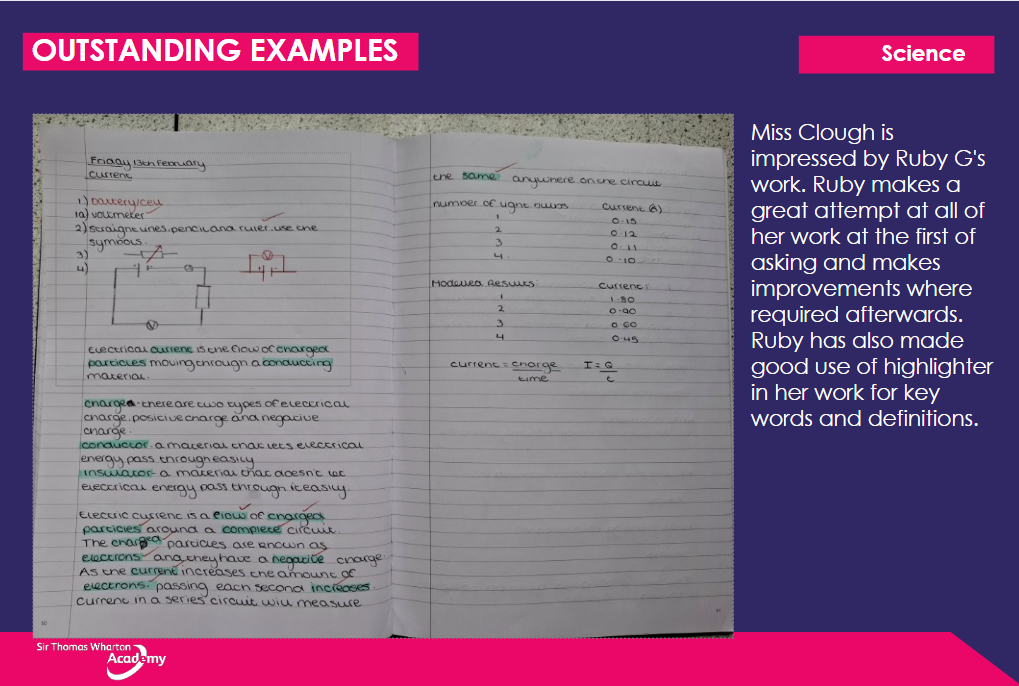 OUTSTANDING EXAMPLES
Science
Friday 13th February
Current
1.) battery/cell
1a) voltmeter
2) straight lines, pencil and ruler. use the
symbols.
3)
4)
V
Electrical current is the flow of charged
particles moving through a conducting
material.
charge - there are two types of electrical
charge. positive charge and negative
charge.
conductor - a material that lets electrical
energy pass through easily
insulator - a material that doesn't let
electrical energy pass through it easily.
Electric current is a flow of charged
particles around a complete circuit.
The charged particles are known as
electrons and they have a negative charge.
As the current increases the amount of
electrons passing each second increases.
Current in a series circuit will measure
the same anywhere on the circuit
number of light bulbs Current (A)
1 0.15
2 0.12
3 0.11
4 0.10
Modelled Results Current:
1 1.80
2 0.90
3 0.60
4 0.45
current = charge I = Q
time t
Miss Clough is
impressed by Ruby G's
work. Ruby makes a
great attempt at all of
her work at the first of
asking and makes
improvements where
required afterwards.
Ruby has also made
good use of highlighter
in her work for key
words and definitions.
Sir Thomas Wharton
Academy